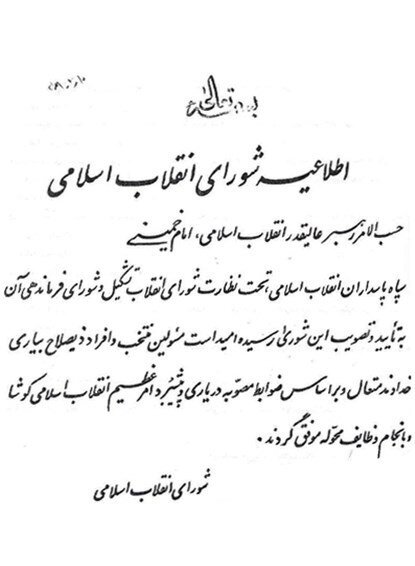 بسمه تعالی
اطلاعیه شورای انقلاب اسلامی
حسب الامر رهبر عالیقدر انقلاب اسلامی، امام خمینی
سپاه پاسداران انقلاب اسلامی، تحت نظارت شورای انقلاب تشکیل و شورای فرماندهی آن
به تأیید و تصویب این شوری رسیده امید است مسئولین منتخب و افراد ذیصلاح بیاری
خداوند متعال و بر اساس ضوابط مصوبه در یاری و پیشبرد امر عظیم انقلاب اسلامی کوشا
و بانجام وظایف محوله موفق گردند.
شورای انقلاب اسلامی